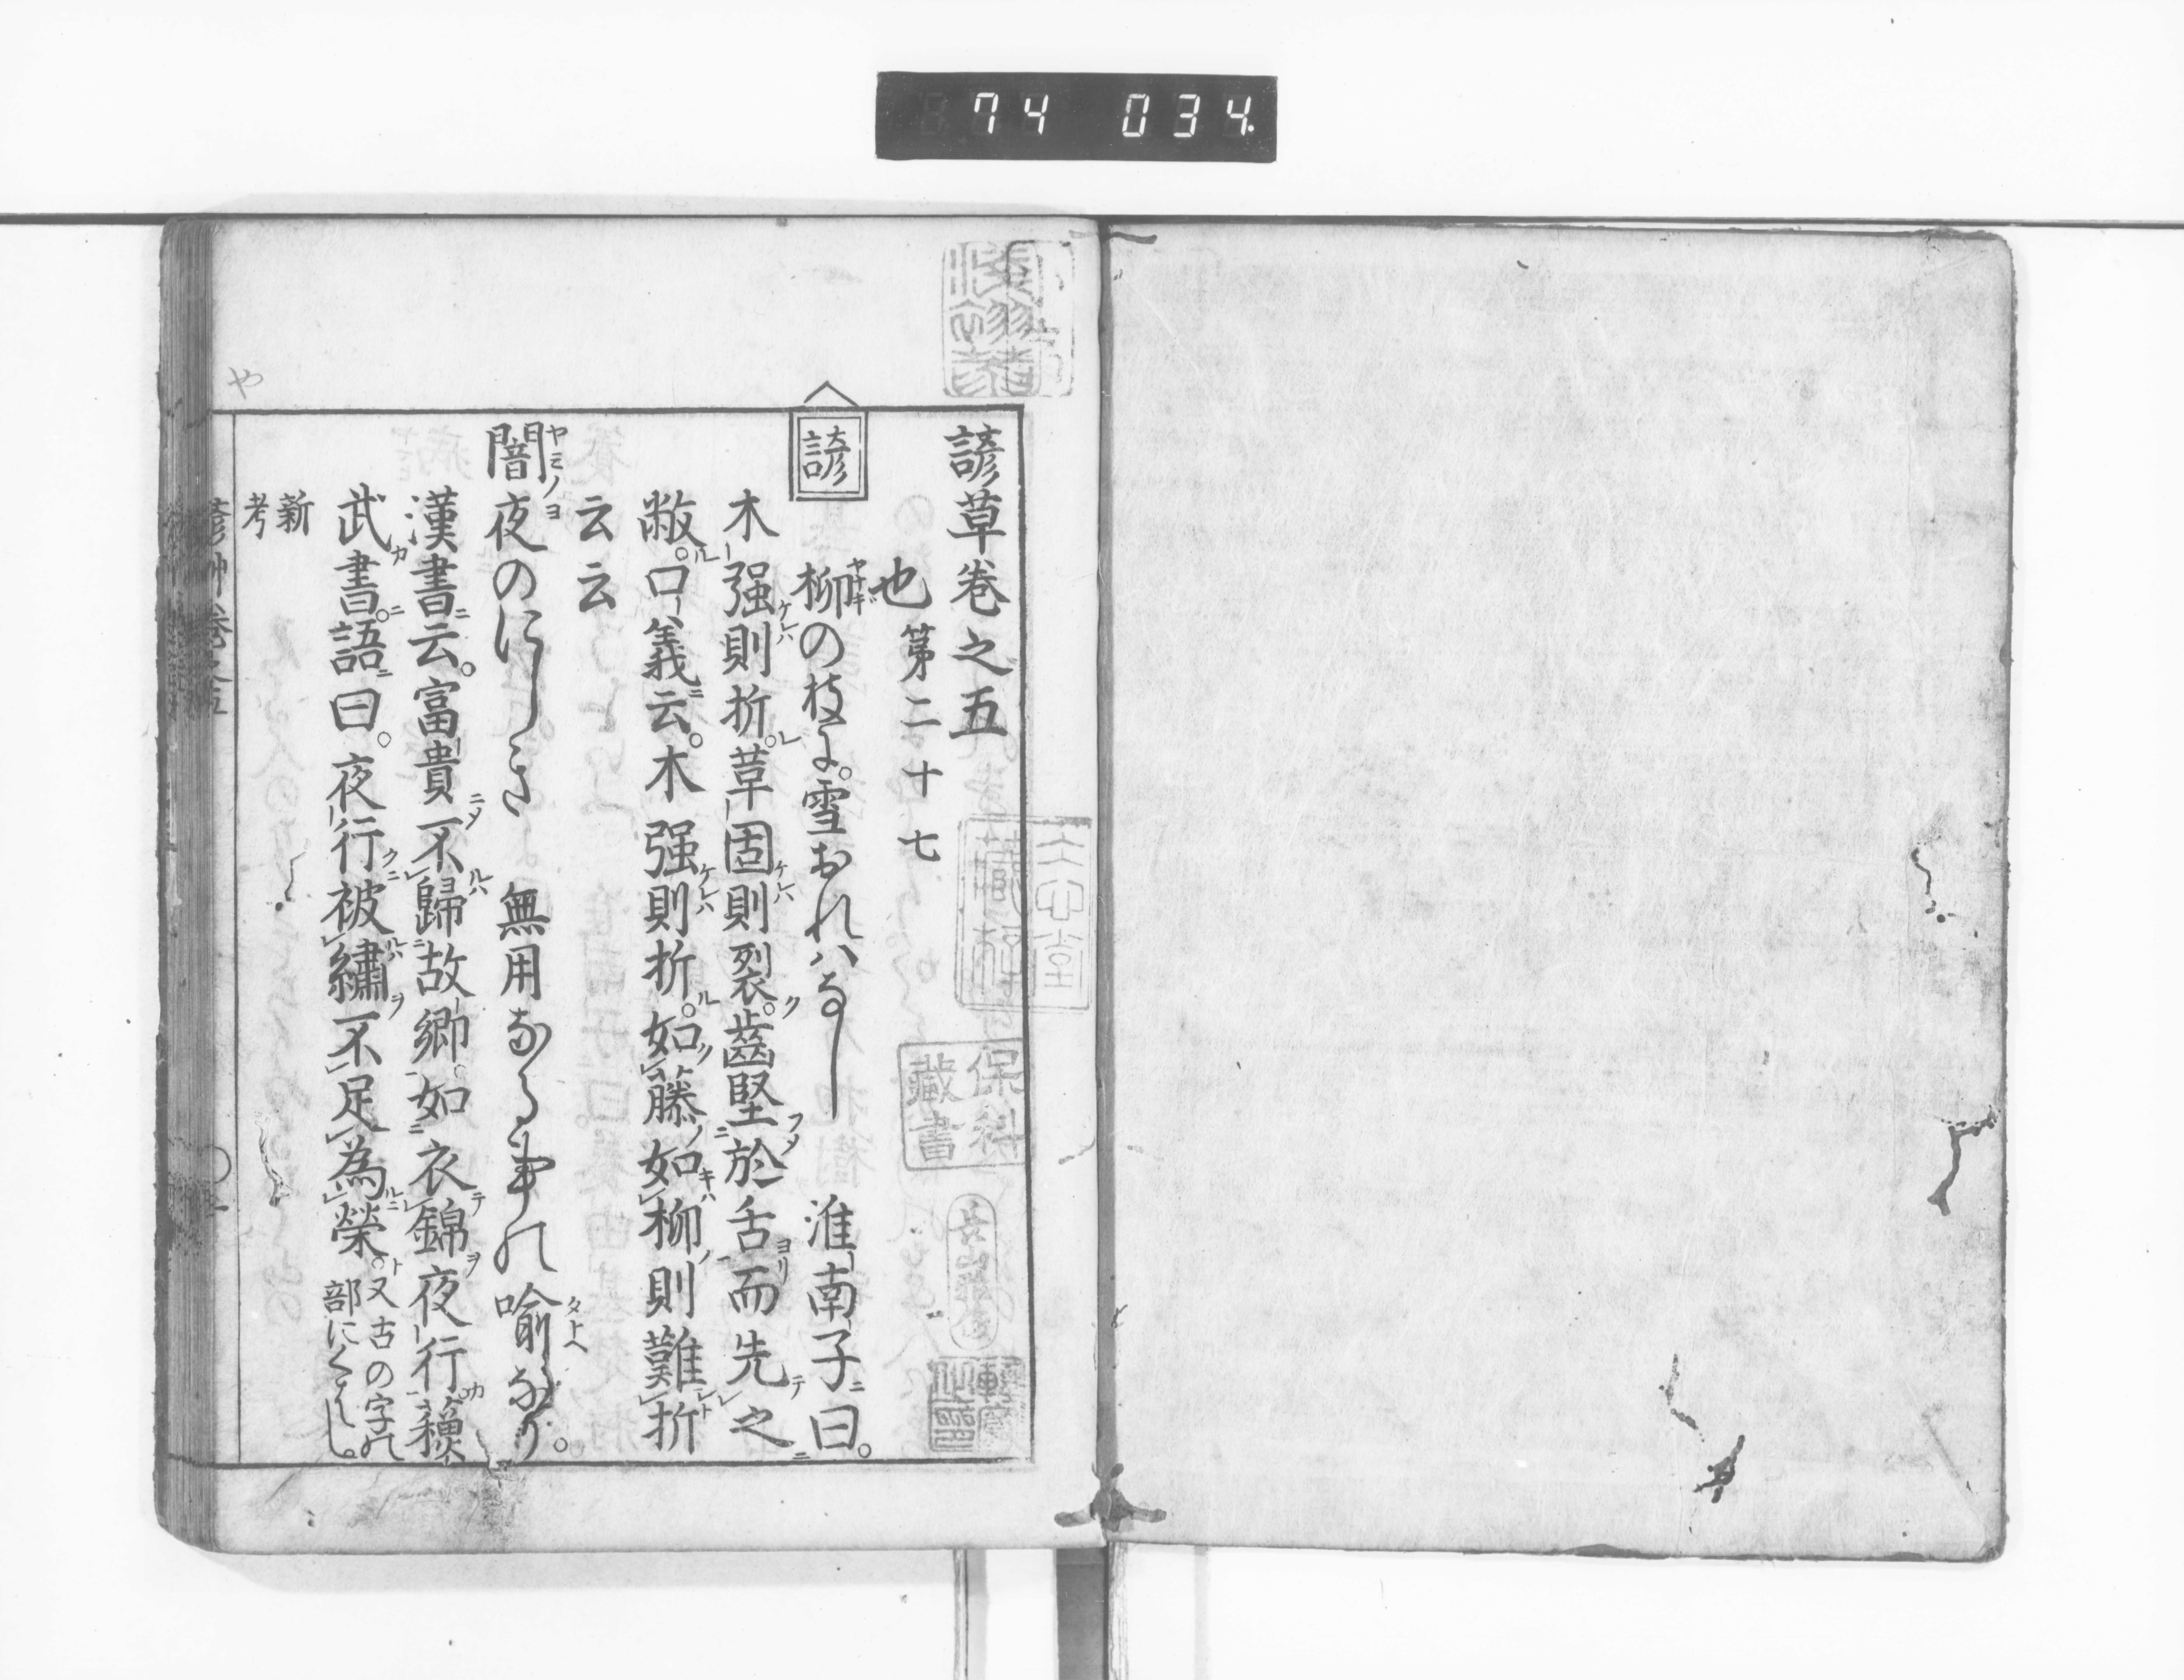 74 034.
諺草巻之五
也第二十七
諺
柳の枝に。雪おれハなし　淮南子ニ曰。
木强則折。草固則裂。齒堅於舌而先之
敝。口義云。木强則折。如藤如柳則難折
云云
闇夜のにしき　無用なる事の喩なり。
漢書云。富貴不歸故郷。如衣錦夜行
武書。語曰。夜行被繡不足為榮。又古の字の
部にくはし。
新
考
や
保科
藏書